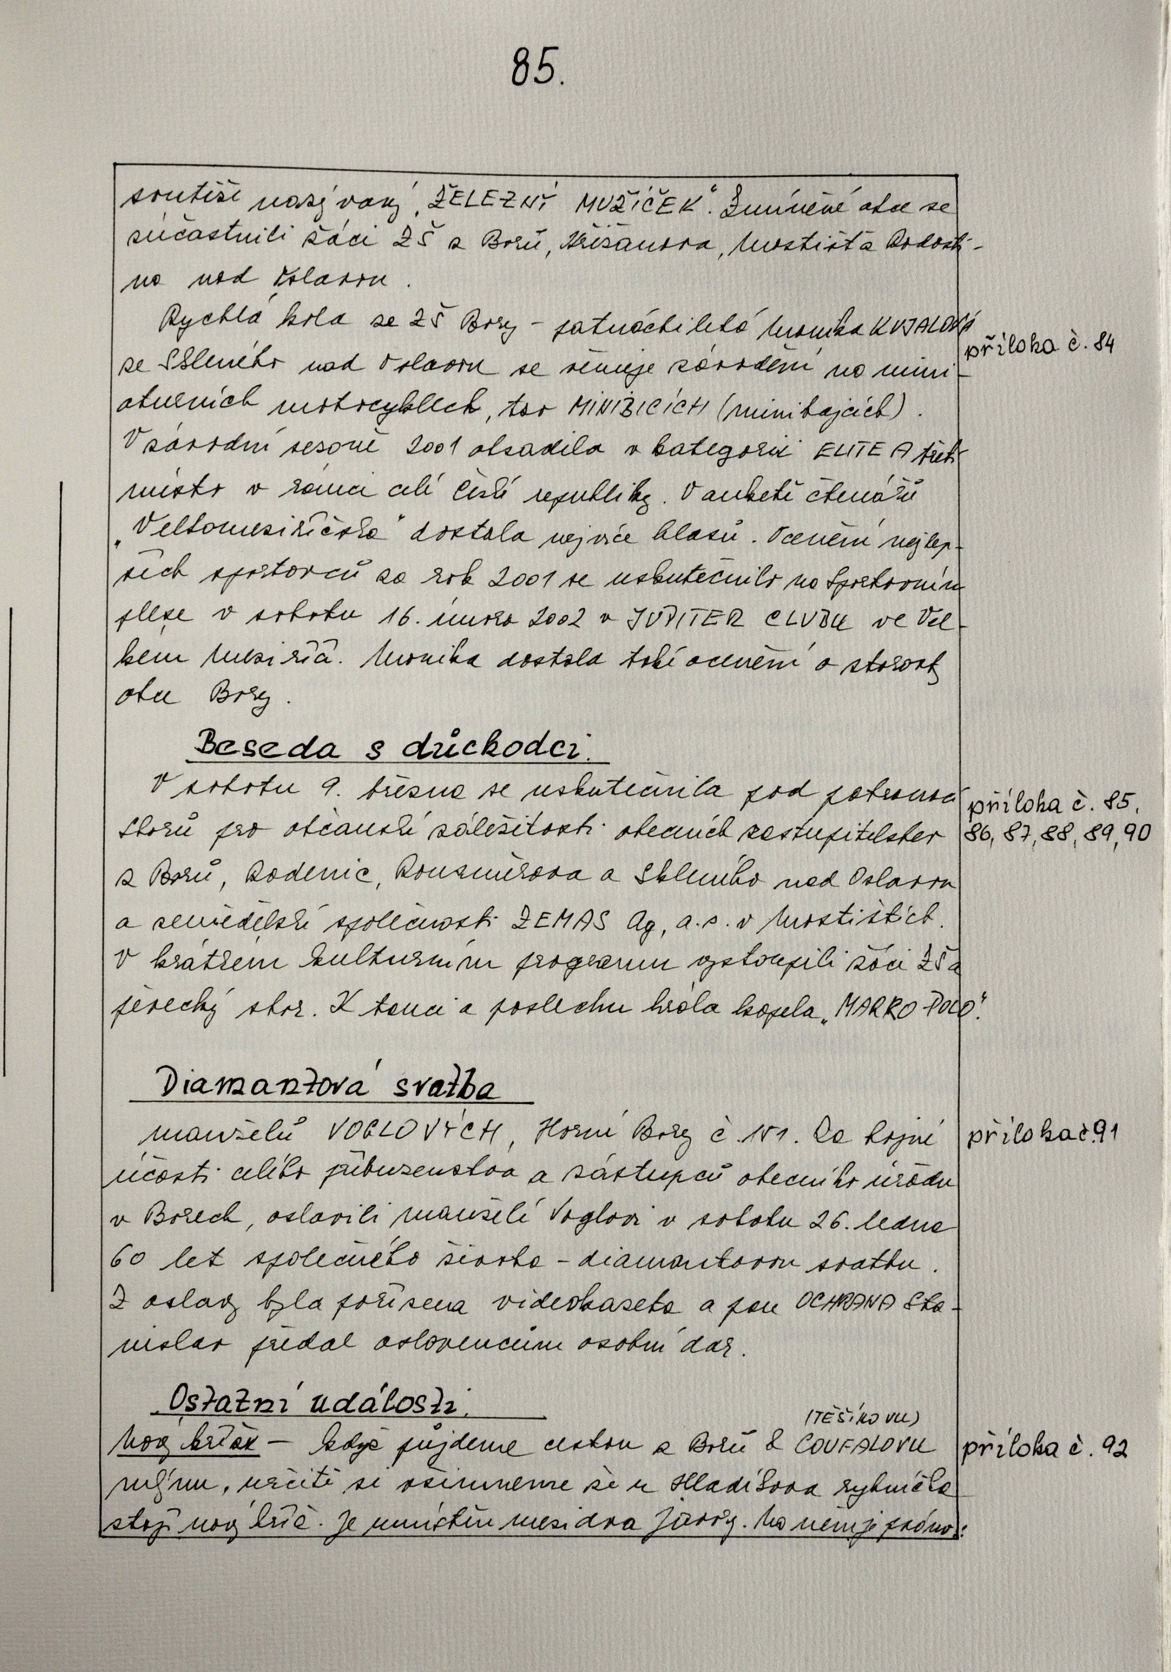 85.
soutěže nazývaný „ŽELEZNÝ MUŽÍČEK“. Zmíněné akce se
zúčastnili žáci ZŠ z Borů, Křižanova, Mostiště a Radosti-
na nad Oslavou.
Rychlá kola ze ZŠ Bory – patnáctiletá Monika KUJALOVÁ
příloha č. 84
ze Skleného nad Oslavou se věnuje závodění na mini-
aturních motocyklech, tzv MINIBICÍCH (minibajcích).
V závodní sezoně 2001 obsadila v kategorii ELITE A třetí
místo v rámci celé České republiky. V anketě čtenářů
„Velkomeziříčska“ dostala nejvíce hlasů. Ocenění nejlep-
ších sportovců za rok 2001 se uskutečnilo na Sportovním
plese v sobotu 16. února 2002 v JUPITER CLUBU ve Vel-
kém Meziříčí. Monika dostala také ocenění o starosty
obce Bory.
Beseda s důchodci.
V sobotu 9. března se uskutečnila pod patronací
příloha č. 85,
sborů pro občanské záležitosti obecních zastupitelstev
86, 87, 88, 89, 90
z Borů, Radenic, Rousměrova a Skleného nad Oslavou
a zemědělské společnosti ZEMAS Ag, a.s. v Mostištích.
V krátkém kulturním programu vystoupili žáci ZŠ a
pěvecký sbor. K tanci a poslechu hrála kapela „MARKO-POLO“.
Diamantová svatba
manželů VOGLOVÝCH, Horní Bory č. 151. Za hojné
příloha č. 91
účasti celého příbuzenstva a zástupců obecního úřadu
v Borech, oslavili manželé Voglovi v sobotu 26. ledna
60 let společného života – diamantovou svatbu.
Z oslavy byla pořízena videokazeta a pan OCHRANA Sta-
nislav předal oslavencům osobní dar.
Ostatní události.
(TĚŠÍKOVU)
Nový kříž – když půjdeme cestou z Borů k COUFALOVU
příloha č. 92
mlýnu, určitě si všimneme že u Hladíkova rybníčka
stojí nový kříž. Je umístěn mezi dva javory. Na něm je